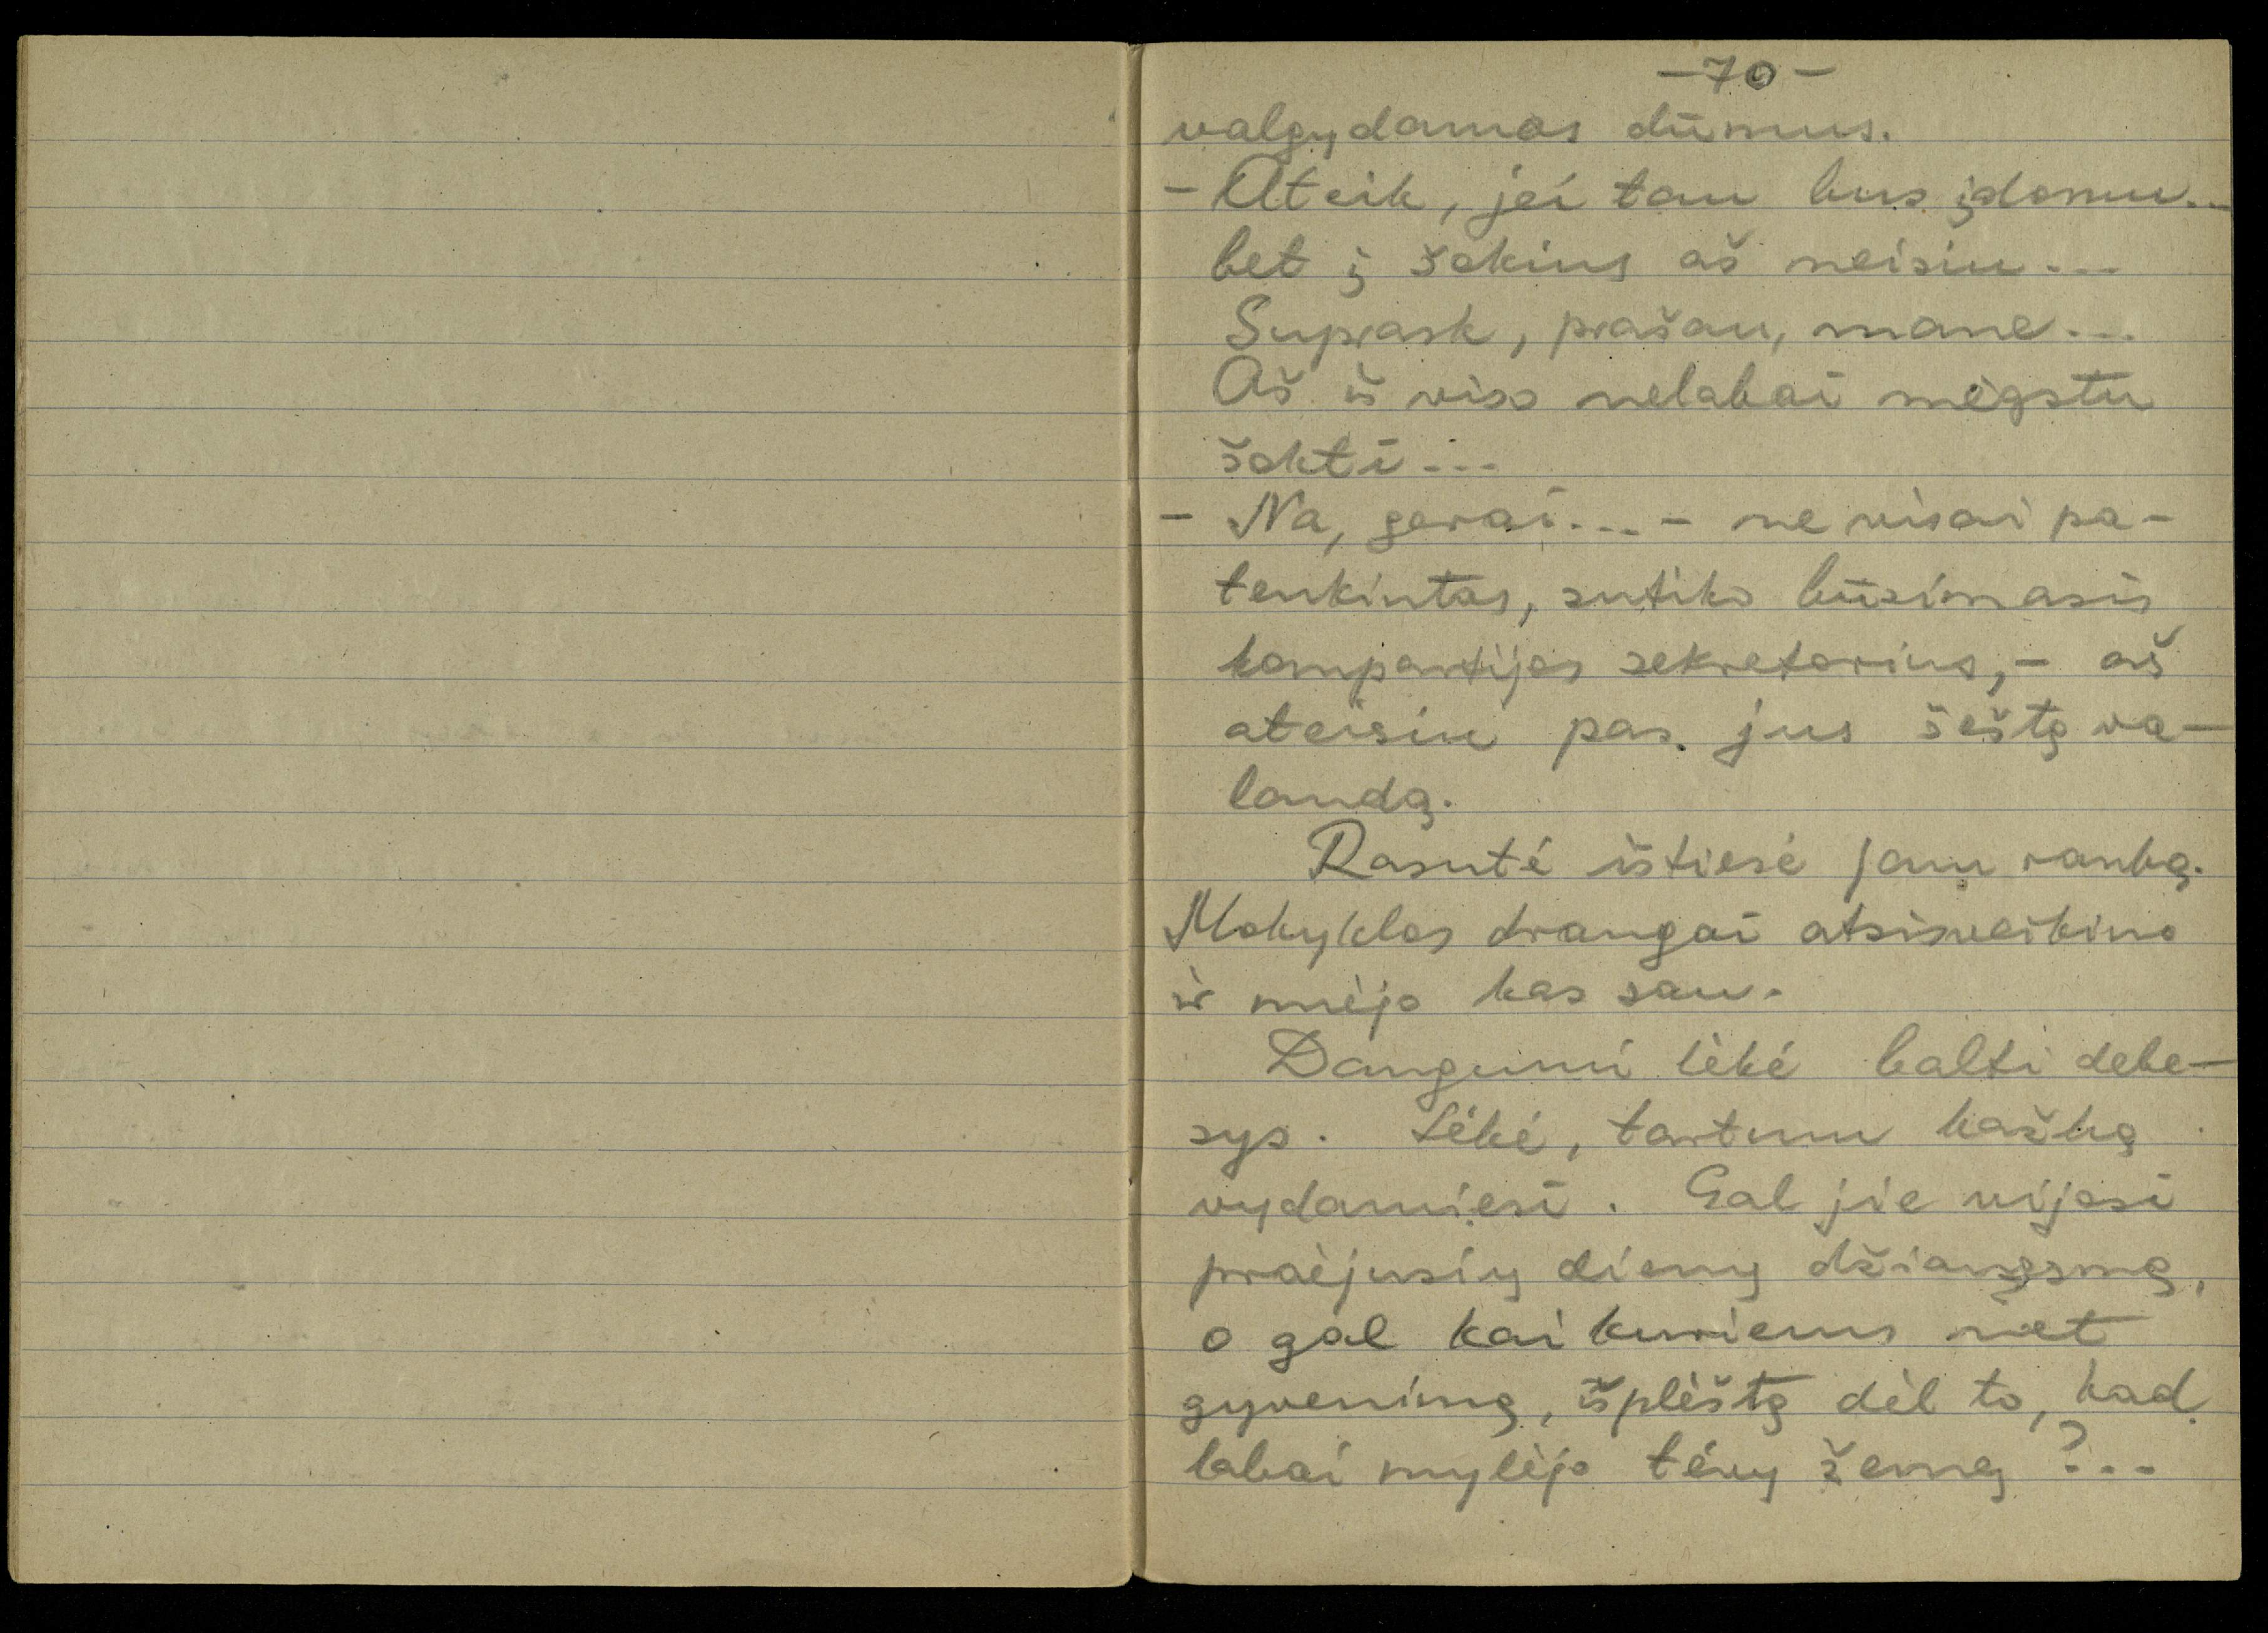 -70-
valgydamas dūmus.
- Ateik, jei tau bus įdomu...
bet į šokius aš neisiu...
Suprask, prašau, mane...
Aš iš viso nelabai mėgstu
šokti...
- Na, gerai... - ne visai pa-
tenkintas, sutiko būsimasis
kompartijos sekretorius, - aš
ateisiu pas jus šeštą va-
landą.
Rasutė ištiesė jam ranką.
Mokyklos draugai atsisveikino
ir nuėjo kas sau.
Dangumi lėkė balti debe-
sys. Lėkė, tartum kažką
vydamiesi. Gal jie vijosi
praėjusių dienų džiaugsmą,
o gal kai kuriems net
gyvenimą, išplėštą dėl to, kad
labai mylėjo tėvų žemę?...